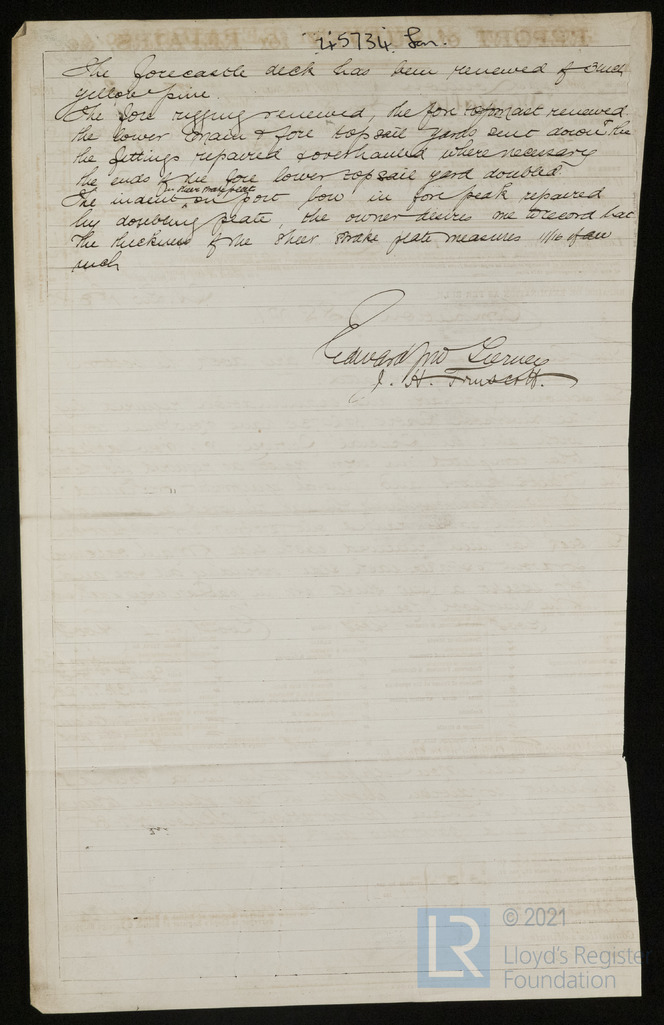 45734 Lon.
The forecastle deck has been renewed of 3 inch
yellow pine.
The fore rigging renewed, the fore topmast renewed
the lower main & fore topsail yards sent down & the
the fittings repaired & overhauled where necessary
the ends of the fore lower topsail yard doubled
The indent in sheer strake plate on port bow in fore peak repaired
by doubling plate, the owner desires me to record that
the thickness of the Sheer Strake plate measures 11/16 of an
inch
Edward
J. H. Truscott.
© 2021
LR
Lloyd's Register
Foundation